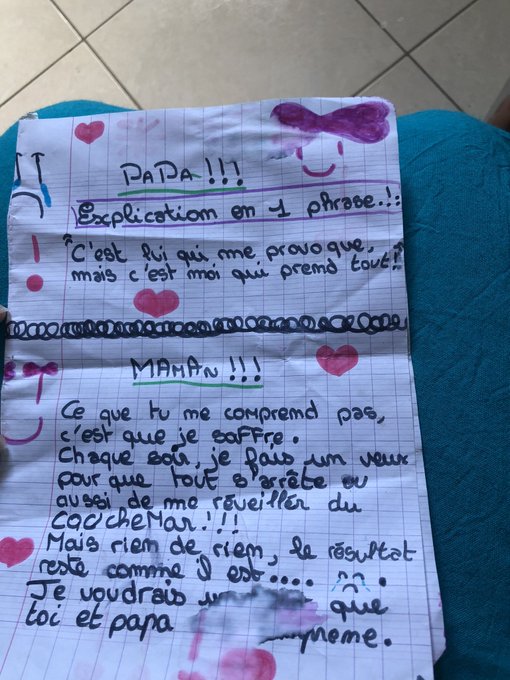 PAPA !!!
Explication en 1 phrase.!:
"C'est lui qui me provoque,
mais c'est moi qui prend tout!"
MAMAN !!!
Ce que tu me comprend pas,
c'est que je saffre.
Chaque soir, je fais un veux
pour que tout s'arrête ou
aussi de me réveiller du
CaucheMar!!!
Mais rien de rien, le résultat
reste comme il est....
Je voudrais que
toi et papa
meme.